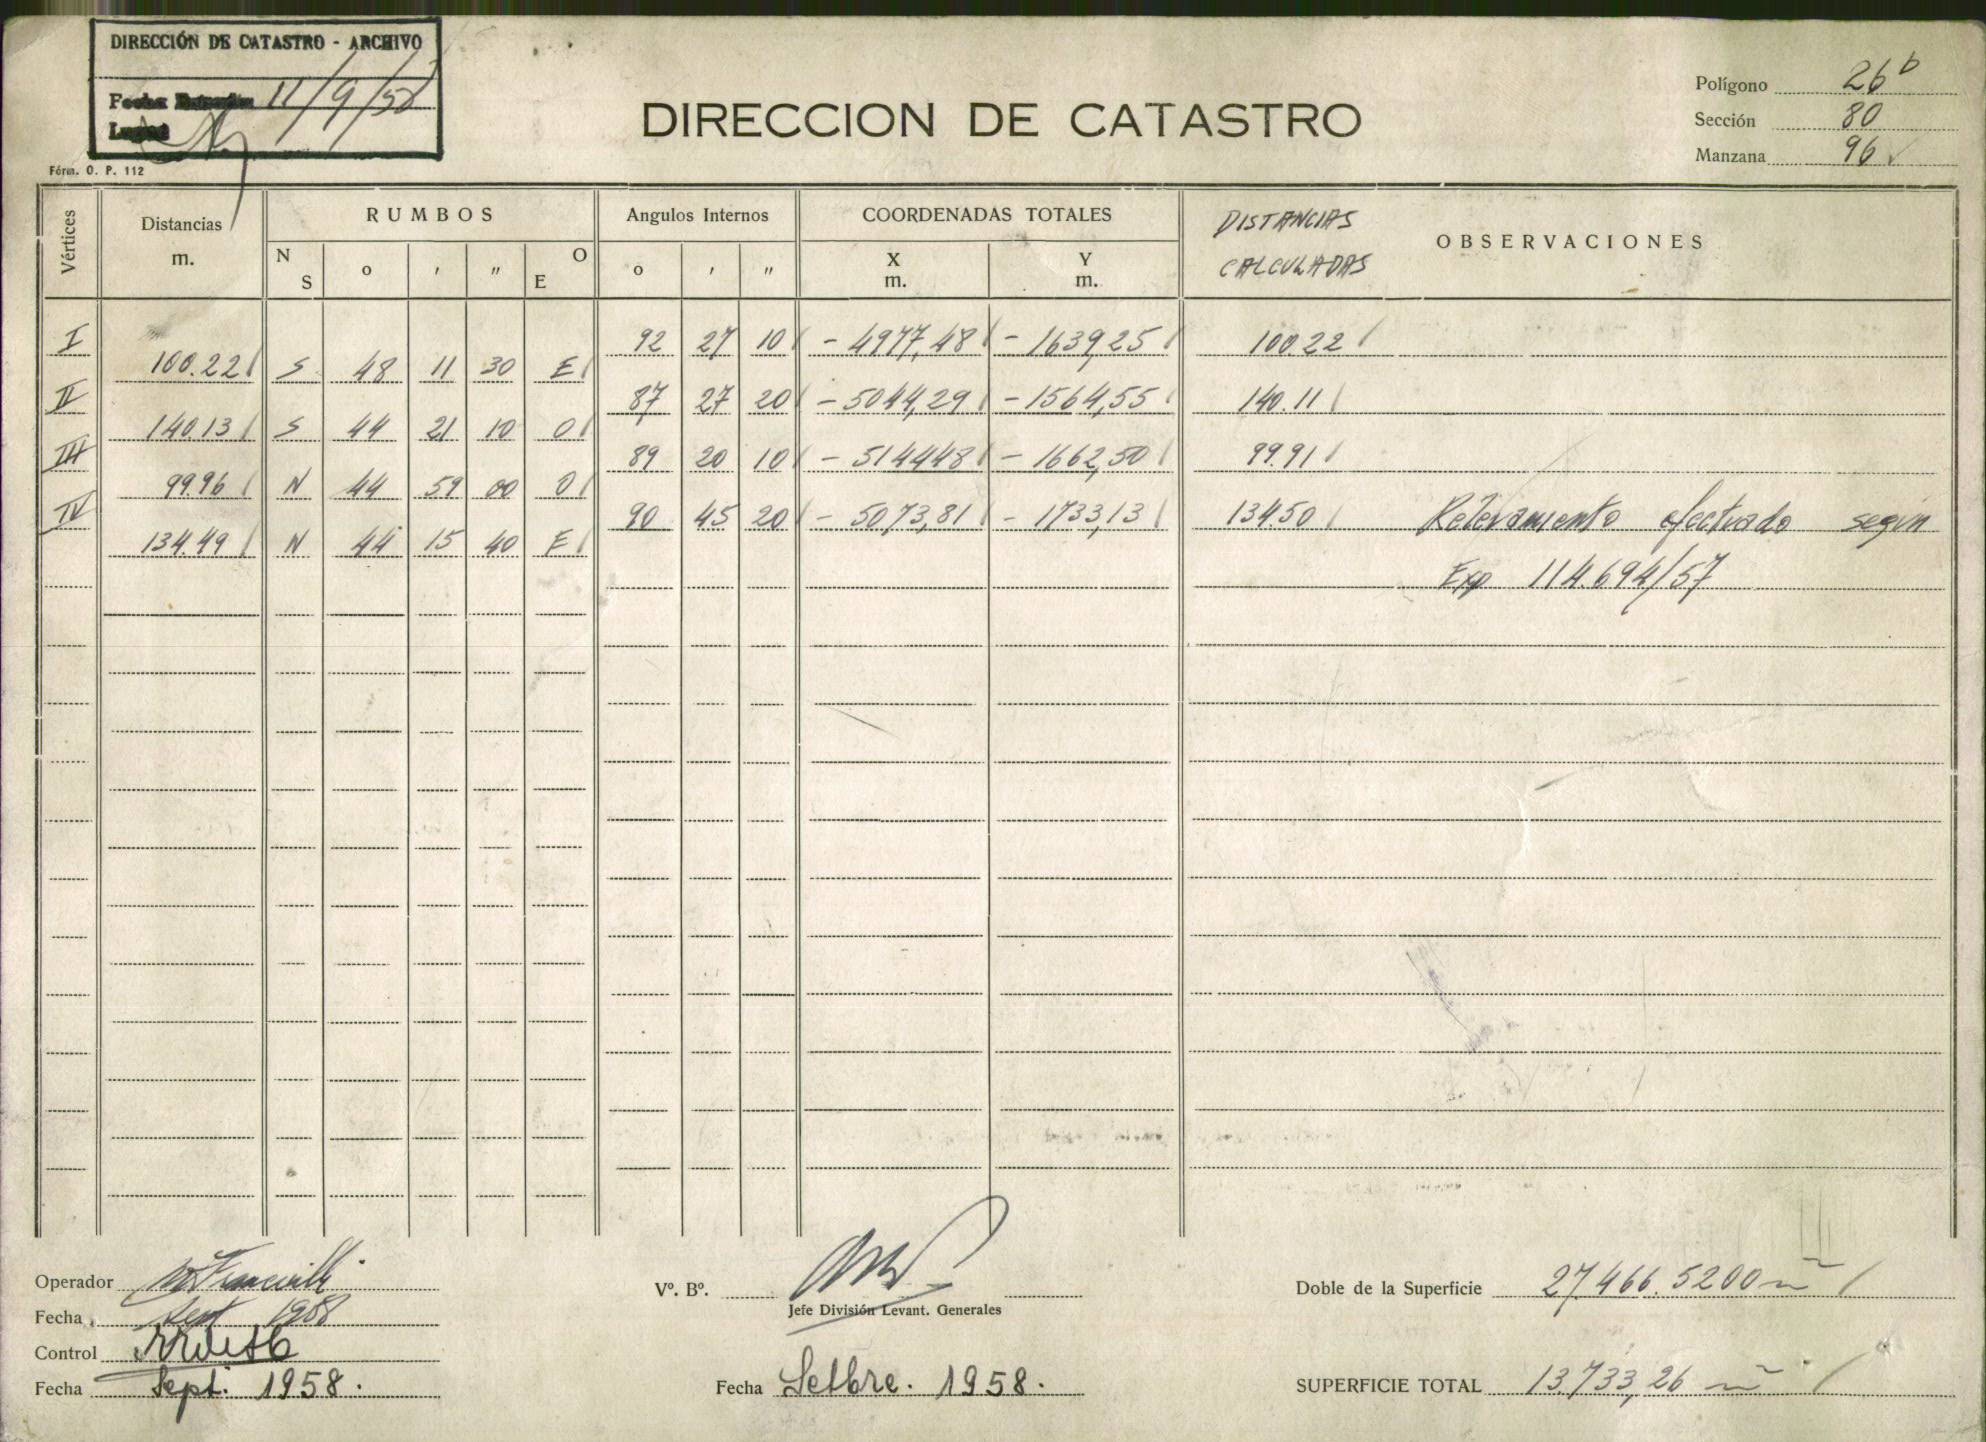 DIRECCIÓN DE CATASTRO - ARCHIVO
Fecha 11/9/58
Fórm. O. P. 112
DIRECCION DE CATASTRO
Polígono 26 b
Sección 80
Manzana 96
Vértices Distancias m. RUMBOS N S o ' " O E Angulos Internos o ' " COORDENADAS TOTALES X m. Y m. DISTANCIAS CALCULADAS OBSERVACIONES
I 92 27 10 - 4977,48 - 1639,25 100.22
100.22 S 48 11 30 E
II 87 27 20 - 5044,29 - 1564,55 140.11
140.13 S 44 21 10 O
III 89 20 10 - 514448 - 1662,50 99.91
99.96 N 44 59 00 O
IV 90 45 20 - 5073,81 - 1733,13 134.50 Relevamiento efectuado según
134.49 N 44 15 40 E
Exp 114.694/57
Operador
Fecha Sept 1958
Control
Fecha Sept. 1958.
Vº. Bº.
Jefe División Levant. Generales
Fecha Setbre. 1958.
Doble de la Superficie 27466.5200 m²
SUPERFICIE TOTAL 13.733,26 m²